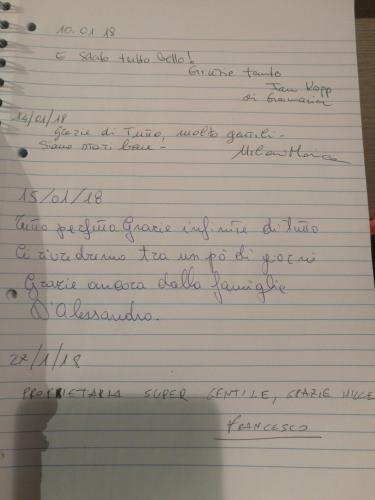 10.01.18
E stato tutto bello!
Grazie tanto
Jan Kopp
di Germania
14/01/18
Grazie di Tutto, molto gentili -
Siamo stati bene -
15/01/18
Tutto perfetto Grazie infinite di tutto
Ci rivedremo tra un pò di giorni
Grazie ancora dalla famiglia
D'Alessandro.
27/1/18
PROPRIETARIA SUPER GENTILE, GRAZIE MILLE
FRANCESCO